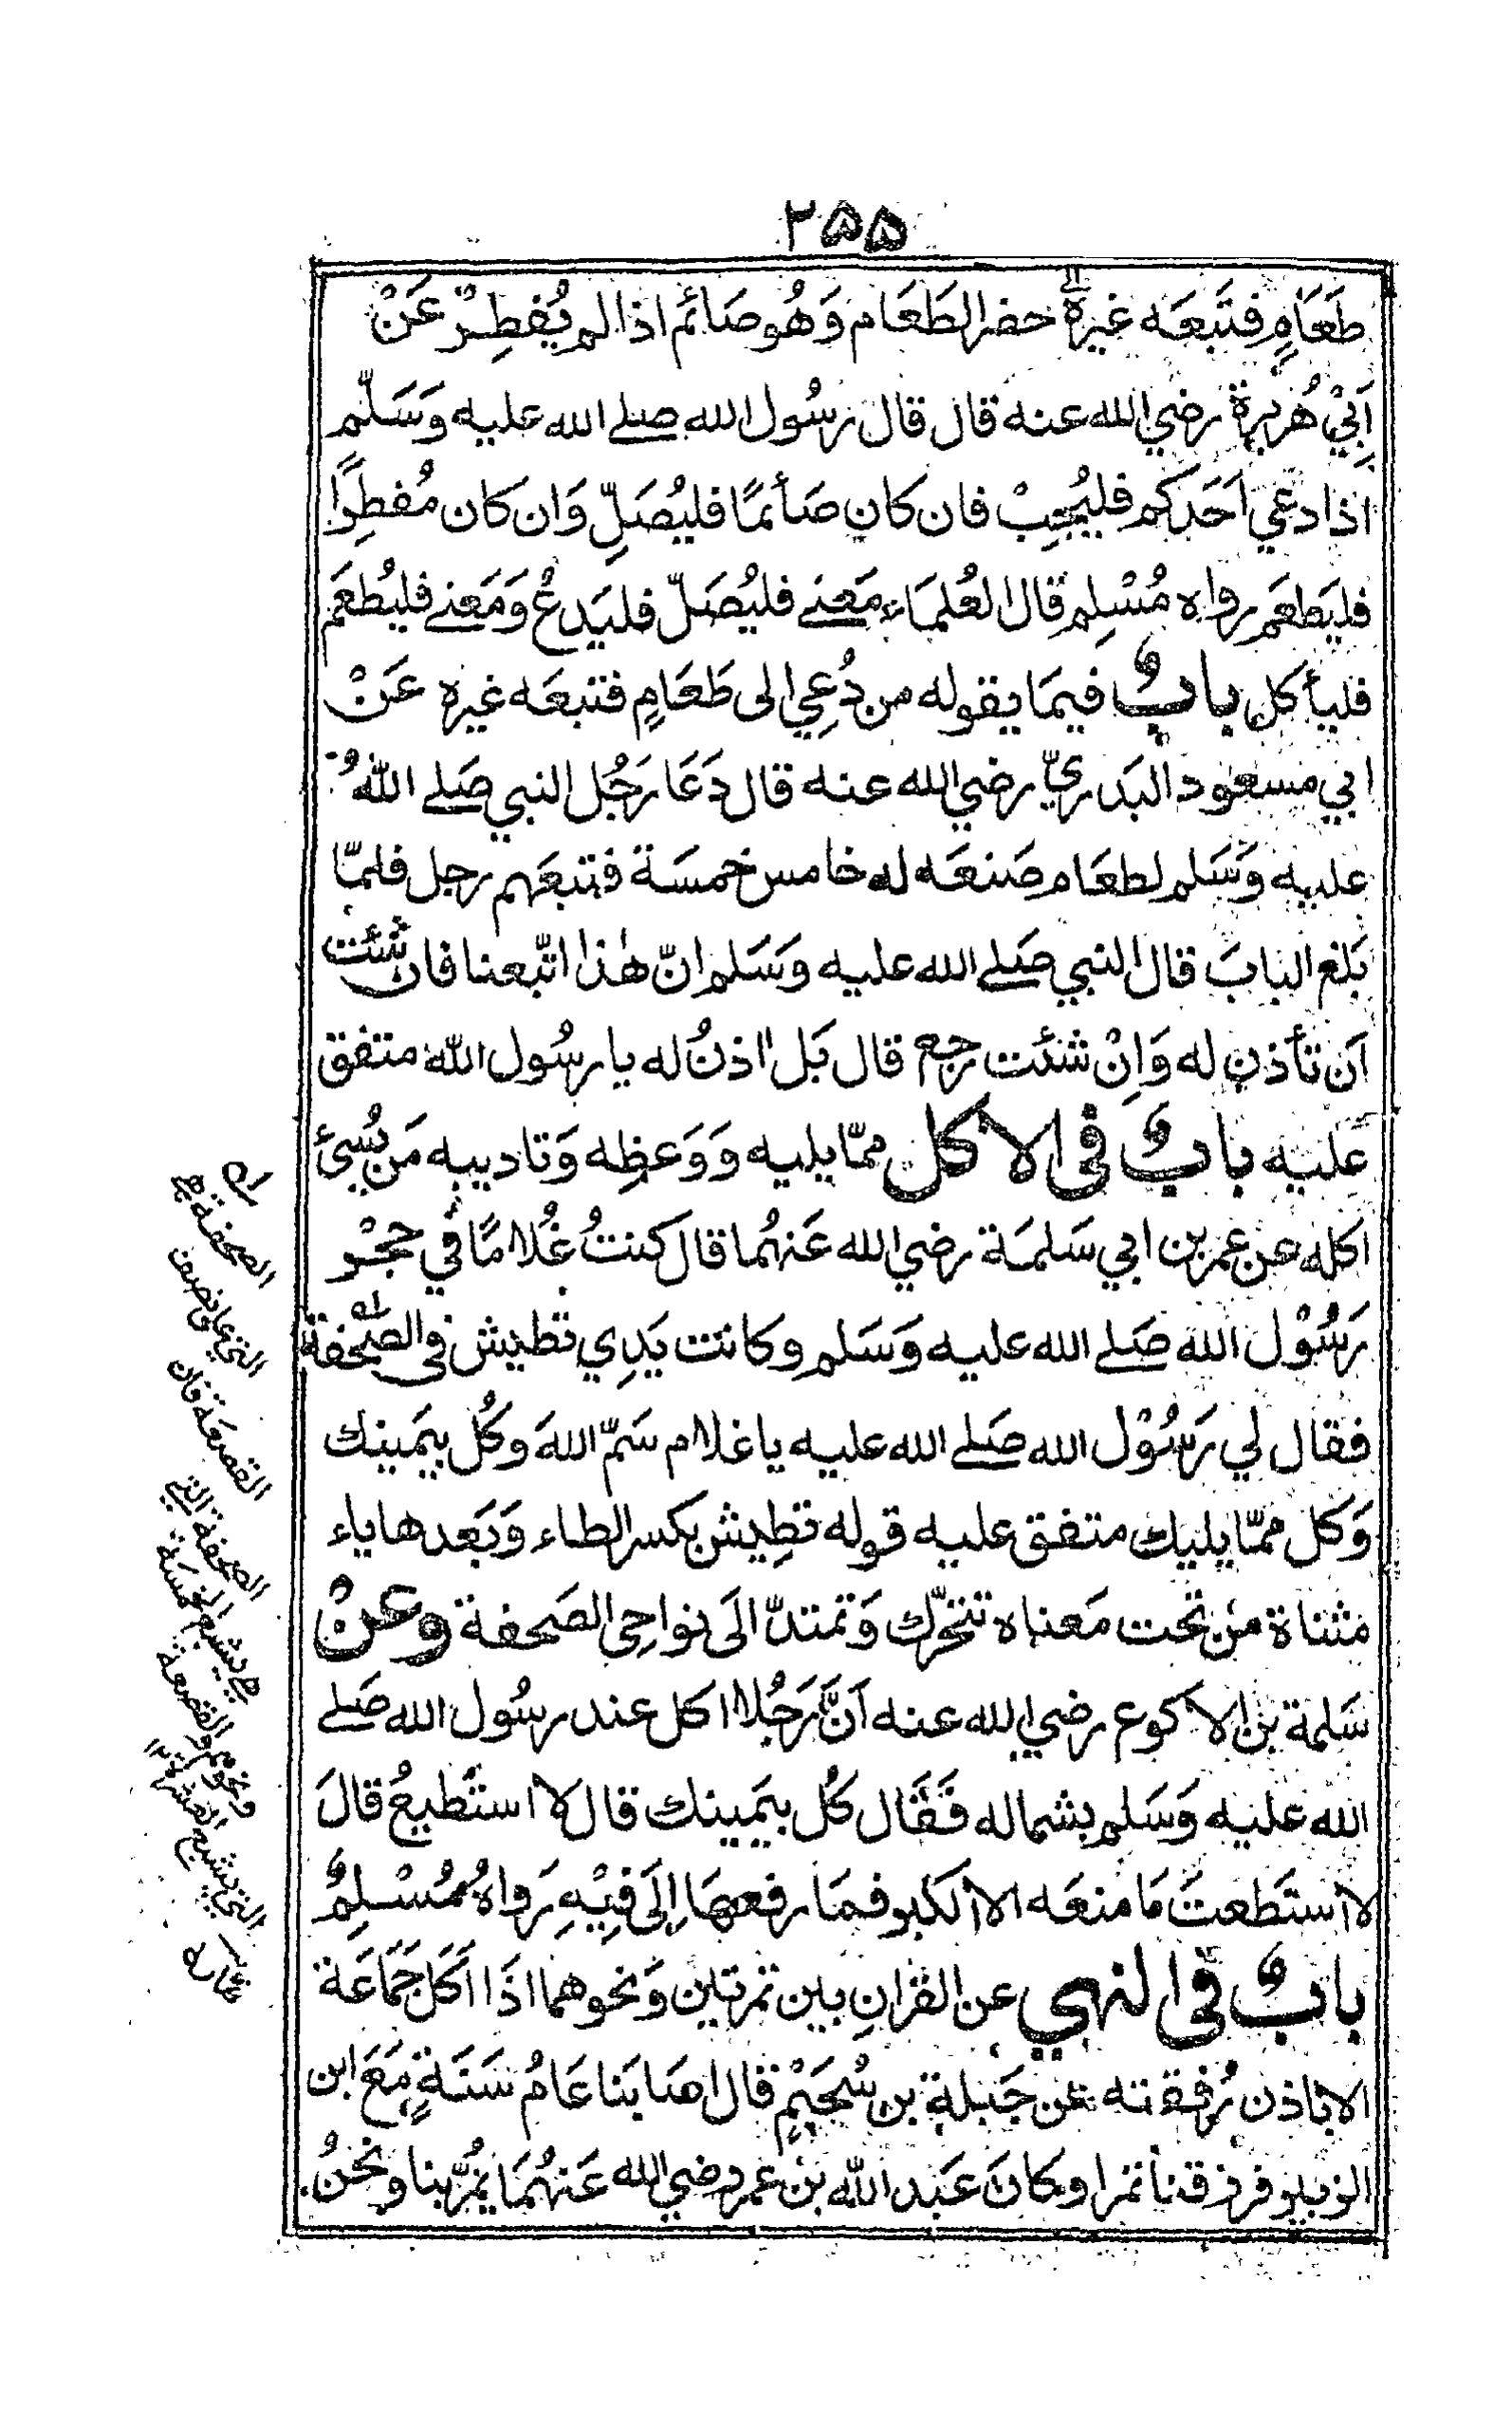 ۲۵۵
طَعَامٍ فتَبعَه غيره حضر الطَعَام وَهُو صَائم اذا لم يُفطِرْ عَنْ
اَبِيْ هُريرة رضي الله عنه قال قال رسُول الله صلے الله عليه وَسَلّم
اذا دعي اَحَدكم فليُجِبْ فان كان صَأئمًا فليُصَلِّ وَان كان مُفطِرًا
فليَطعَم رواه مُسْلِم قال العُلمَاء مَعنے فليُصَلّ فليَدعُ وَمَعنے فليُطعَم
فليأكل بابٌ فيمَا يقوله من دُعِي الى طَعَامٍ فتبعَه غيره عَنْ
ابي مسعود البَدريّ رضي الله عنه قال دَعَا رَجُل النبي صَلے اللهُ
عليه وَسَلم لطعَام صَنعَه له خامس خمسَة فتبعَهم رجل فلمّا
بَلغ البابَ قال النبي صَلے الله عليه وَسَلم انّ هٰذا اتّبعنا فان شئت
اَن تأذن له وَاِنْ شئت رجع قال بَل اٰذنُ له يا رسُول الله متفق
عليه بابٌ فى الاكل ممّا يليه وَوَعظِه وَتاديبه مَن يُسيئ
اكله عن عمر بن ابي سَلمَة رضي الله عَنهُما قال كنتُ غُلامًا في حجْر
رَسُوْل الله صَلے الله عليه وَسَلم وكانت يَدِي تطيش فى الصَحفة
فقال لي رَسُوْل الله صَلے الله عليه يا غلام سَمّ اللهَ وكُل بيَمينك
وَكل ممّا يليك متفق عليه قوله تطِيش بكسر الطاء وَبَعدها ياء
مثناة من تحت مَعناه تتحرّك وَتمتدّ الَى نواحِى الصَحفة وعنْ
سَلمة بن الاكوع رضي الله عنه اَنَّ رَجُلا اكل عند رسُول الله صَلے
الله عليه وَسَلم بشماله فَقَال كُل بيَمينك قال لا استَطيعُ قالَ
لا استَطعتَ مَا منعَه الا الكبر فمَا رفعهَا اِلَى فِيْهِ رَواهُ مُسْلِمٌ
بابٌ في النهي عن القرانِ بين تمرتين وَنحوهما اذَا اَكَل جَمَاعَة
الا باذن رُفقته عن جَبلة بن سُحَيْمٍ قال اصَابَنا عَامُ سَنَةٍ مَعَ ابن
الزبير فرزقنا تمرا وكانَ عَبد الله بن عمر رضي الله عَنهُمَا يمُرّ بنا ونحنُ
له
الصحفة هي
التي على نصف
القصعة فان
الصحفة التي
تشبع الخمسَة
ونحوهم والقصعة
التي تشبع العشرة ١٢